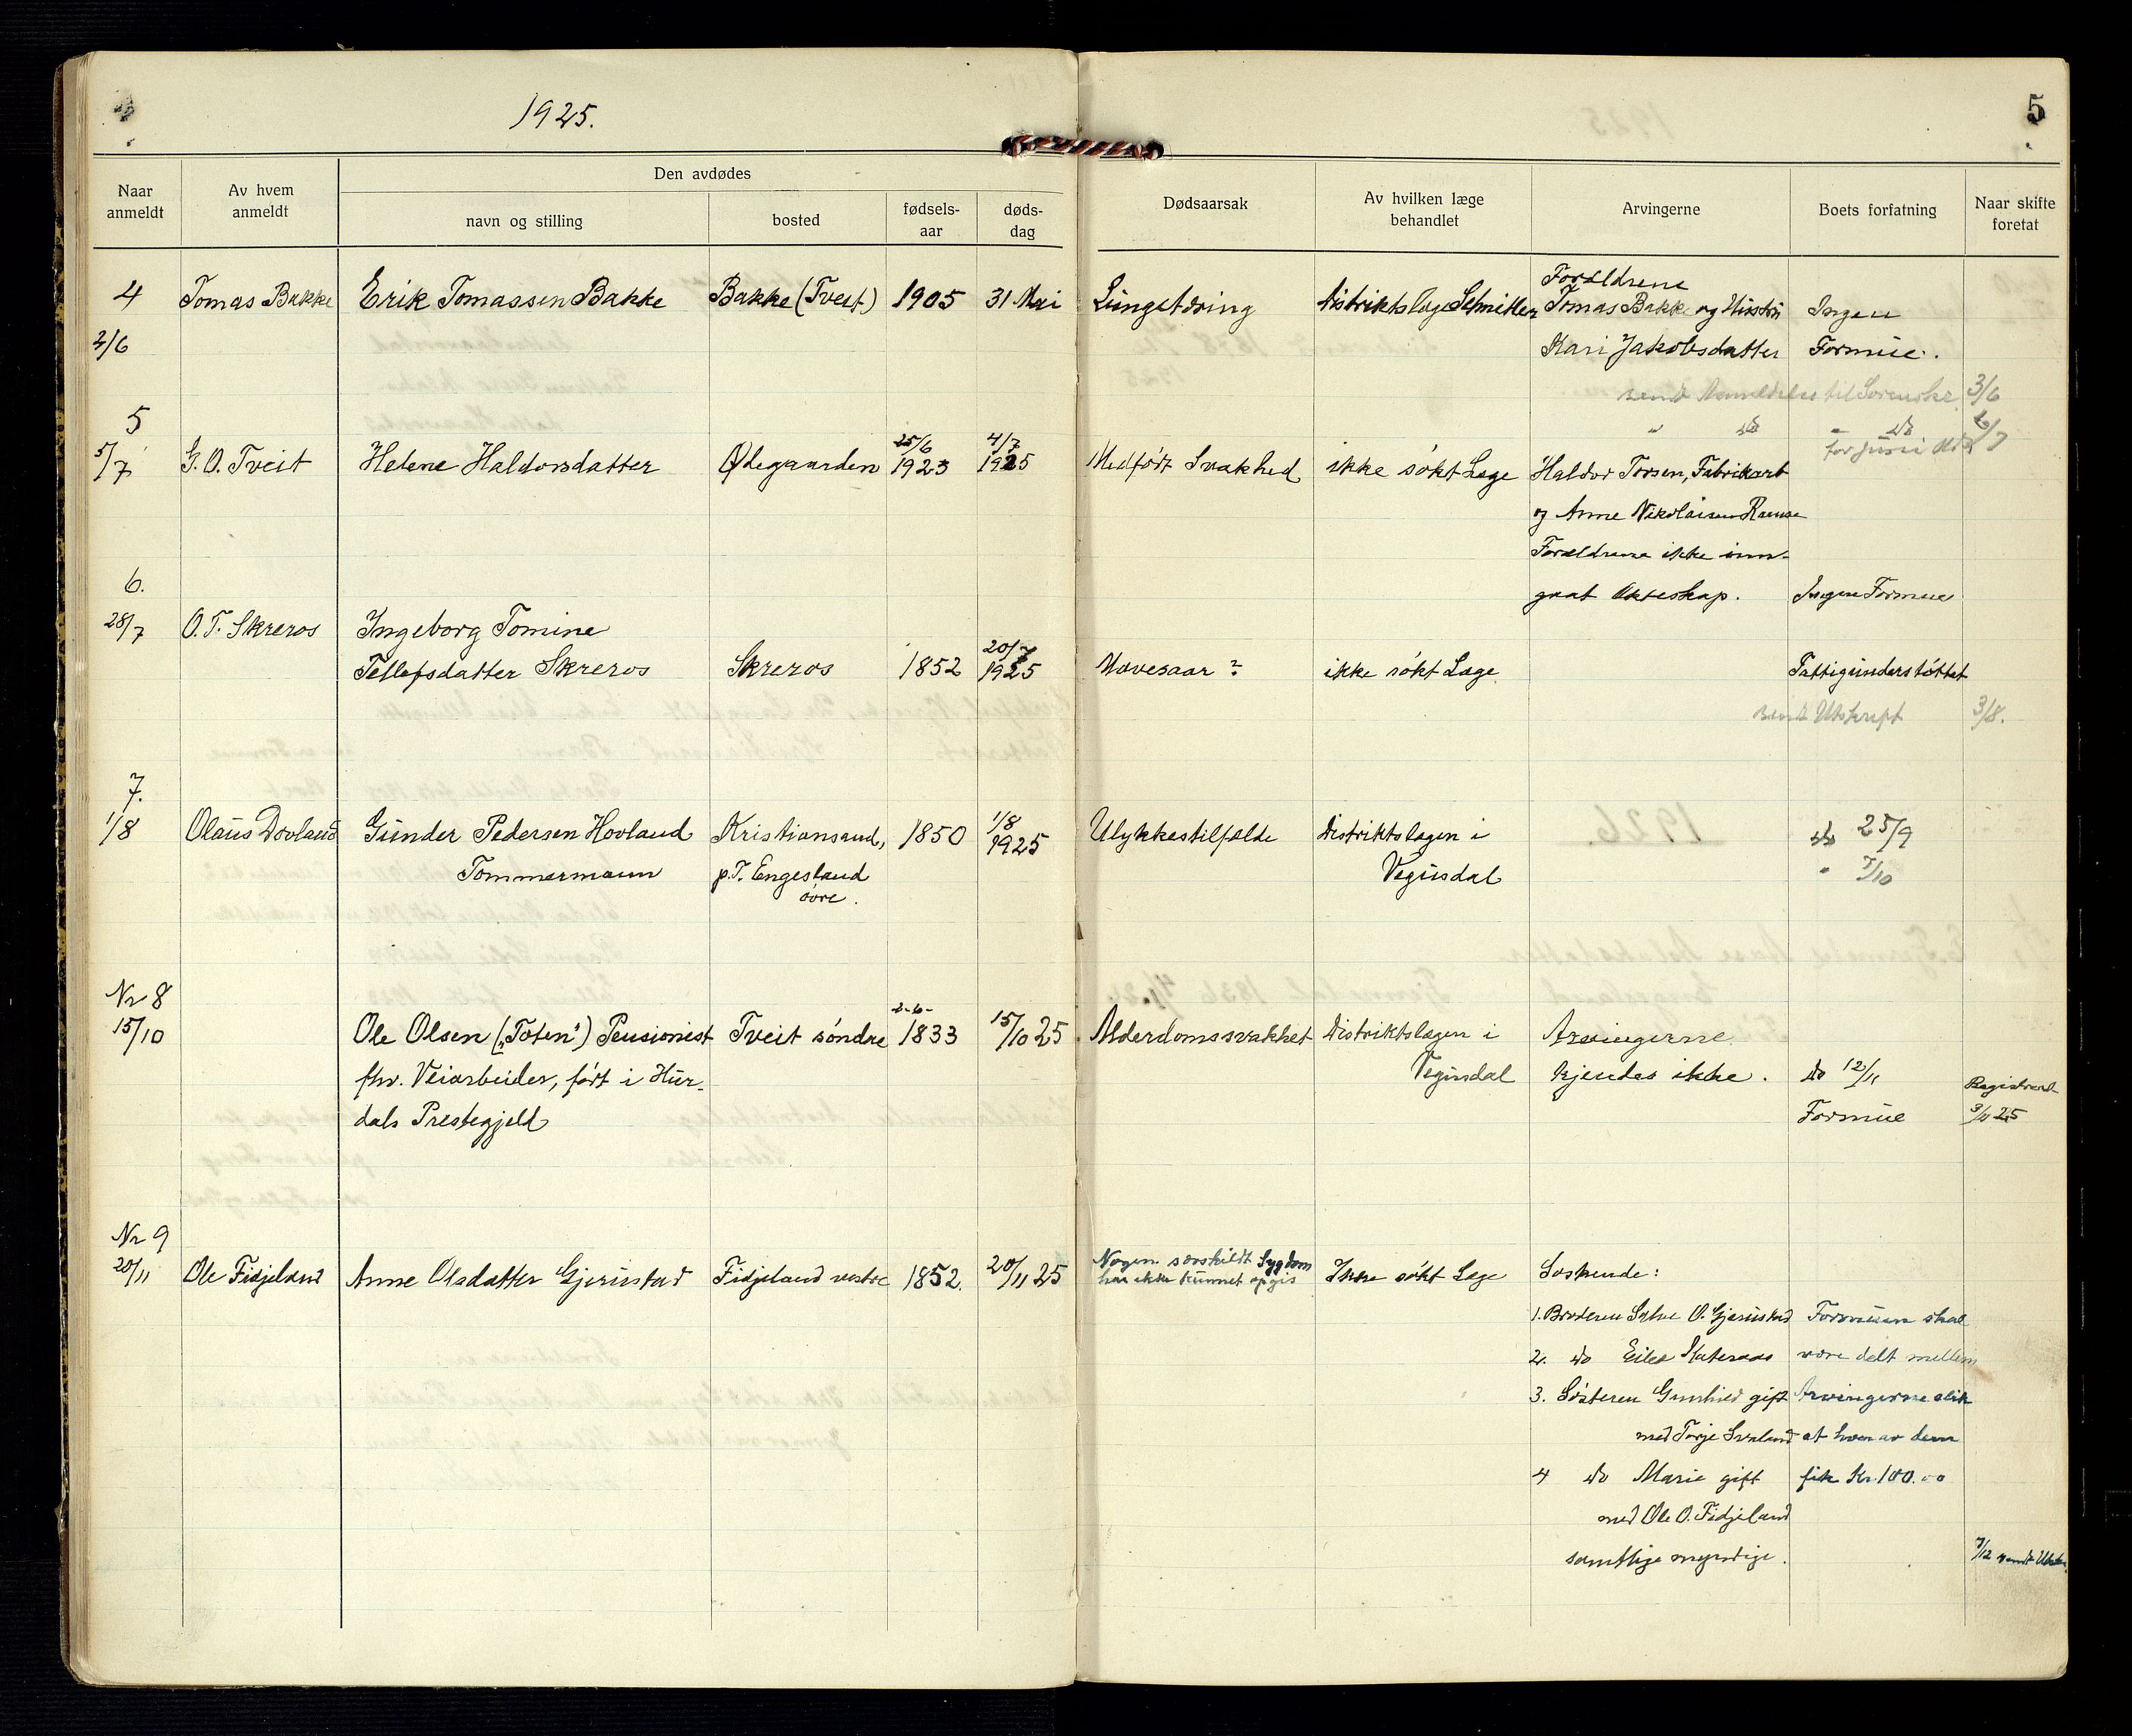 1925.
5
Naar anmeldt
Av hvem anmeldt
Den avdødes
navn og stilling
bosted
fødsels-aar
døds-dag
Dødsaarsak
Av hvilken læge behandlet
Arvingerne
Boets forfatning
Naar skifte foretat
4 Tomas Bakke Erik Tomassen Bakke Bakke (Tveit) 1905 31 Mai Lungetæring distriktslæge Schnitler Forældrene
Tomas Bakke og Hustru Ingen
2/6 Kari Jakobsdatter Formue.
send Anmeldelse til Sorenskr. 3/6
" do - do 6/7
for Juni Md
5
5/7 G. O. Tveit Helene Haldorsdatter Ødegaarden 25/6 1923 4/7 1925 Medført Svakhed ikke søkt Læge Haldor Torsen, Fabrikarb
og Anne Nikolaisen
Forældrene ikke inn-
gaat Ækteskap. Ingen Formue
6.
28/7 O. T. Skreros Ingeborg Tomine
Tellefsdatter Skreros Skreros 1852 20/7 1925 Mavesaar ? ikke søkt Læge Fattigunderstøttet
sendt Utskrift 3/8.
7.
1/8 Olaus Dovland Gunder Pedersen Hovland Kristiansand, 1850 1/8 1925 Ulykkestilfælde Distriktslægen i do 25/9
Tømmermann p.T. Engesland Vegusdal " 7/10
øvre.
Nr 8
15/10 Ole Olsen („Toten") Pensionist Tveit søndre 2-6- 1833 15/10 25 Alderdomssvakhet Distriktslægen i Arvingerne
fhv. Veiarbeider, født i Hur- Vegusdal kjendes ikke. do 12/11 Registrert
dals Prestegjeld Formue 3/11 25
Nr 9
20/11 Ole Fidjeland Anne Olsdatter Gjerustad Fidjeland vestre 1852. 20/11 25 Nogen særskildt Sygdom
har ikke kunnet opgis Ikke søkt Læge Søskende:
1. Broderen Salve O. Gjerustad Formuen skal
2. do Eilef være delt mellem
3. Søsteren Gunhild gift Arvingerne slik
med Torje Svaland at hver av dem
4 do Marie gift fik Kr. 100.00
med Ole O. Fidjeland
samtlige myndige.
7/12 sendt